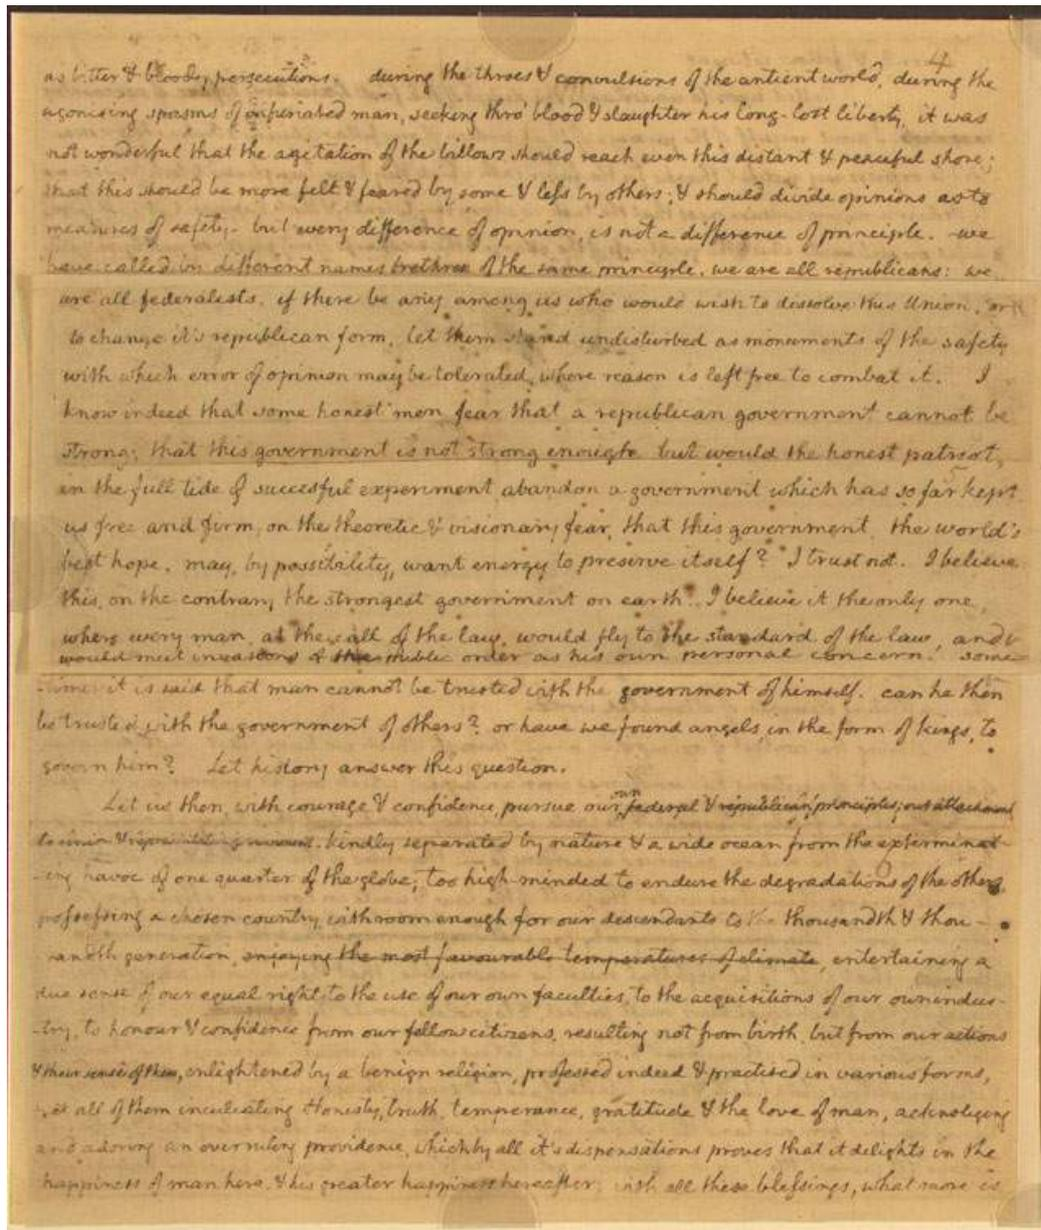 4
as bitter & bloody persecutions. during the throes & convulsions of the antient world, during the
agonising spasms of infuriated man, seeking thro' blood & slaughter his long-lost liberty, it was
not wonderful that the agitation of the billows should reach even this distant & peaceful shore;
that this should be more felt & feared by some & less by others; & should divide opinions as to
measures of safety. but every difference of opinion, is not a difference of principle. we
have called by different names brethren of the same principle. we are all republicans: we
are all federalists. if there be any among us who would wish to dissolve this Union, or
to change it's republican form, let them stand undisturbed as monuments of the safety
with which error of opinion may be tolerated, where reason is left free to combat it. I
know indeed that some honest men fear that a republican government cannot be
strong; that this government is not strong enough. but would the honest patriot,
in the full tide of succesful experiment abandon a government which has so far kept
us free and firm, on the theoretic & visionary fear, that this government, the world's
best hope, may, by possibility, want energy to preserve itself? I trust not. I believe
this, on the contrary, the strongest government on earth. I believe it the only one,
where every man, at the call of the law, would fly to the standard of the law, and
would meet invasions of the public order as his own personal concern. some-
-times it is said that man cannot be trusted with the government of himself. can he then
be trusted with the government of others? or have we found angels, in the form of kings, to
govern him? Let history answer this question.
Let us then, with courage & confidence, pursue our own federal & republican principles; our attachment
to union & representative government. kindly separated by nature & a wide ocean from the exterminat-
-ing havoc of one quarter of the globe; too high-minded to endure the degradations of the others,
possessing a chosen country, with room enough for our descendants to the thousandth & thou-
-sandth generation, enjoying the most favourable temperatures of climate, entertaining a
due sense of our equal right, to the use of our own faculties, to the acquisitions of our own indus-
-try, to honour & confidence from our fellow citizens, resulting not from birth, but from our actions
& their sense of them, enlightened by a benign religion, professed indeed & practised in various forms,
yet all of them inculcating honesty, truth, temperance, gratitude & the love of man, acknoleging
and adoring an overruling providence, which by all it's dispensations proves that it delights in the
happiness of man here, & his greater happiness hereafter; with all these blessings, what more is